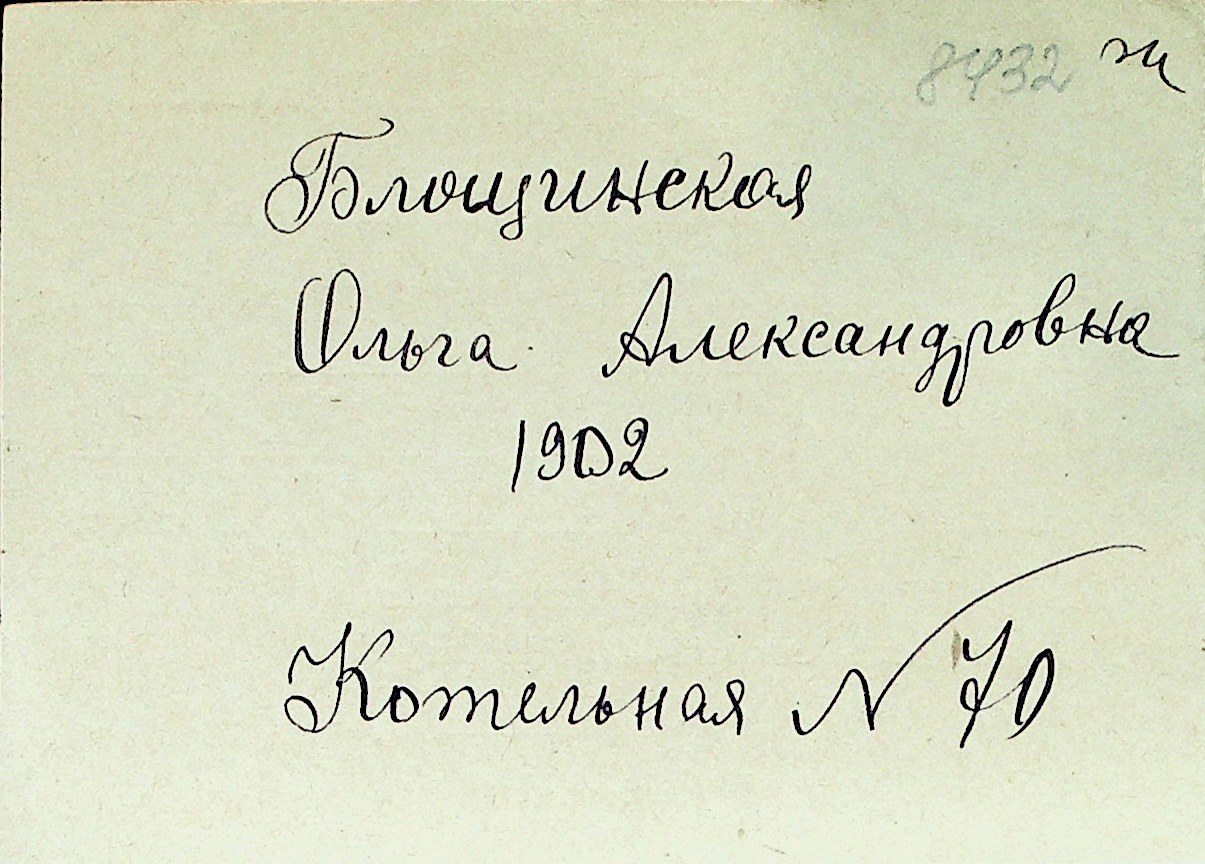 8432 ж
Блощинская
Ольга Александровна
1902
Котельная N 70